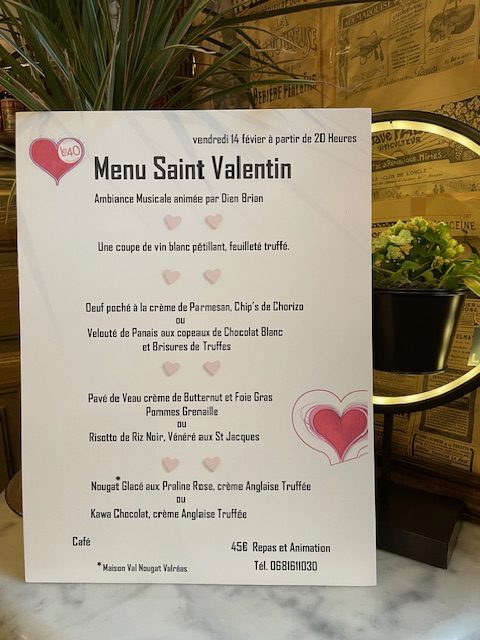 vendredi 14 févier à partir de 20 Heures
Le 40
Menu Saint Valentin
Ambiance Musicale animée par Dien Brian
Une coupe de vin blanc pétillant, feuilleté truffé.
Oeuf poché à la crème de Parmesan, Chip's de Chorizo
ou
Velouté de Panais aux copeaux de Chocolat Blanc
et Brisures de Truffes
Pavé de Veau crème de Butternut et Foie Gras
Pommes Grenaille
ou
Risotto de Riz Noir, Vénéré aux St Jacques
Nougat* Glacé aux Praline Rose, crème Anglaise Truffée
ou
Kawa Chocolat, crème Anglaise Truffée
Café
45€ Repas et Animation
*Maison Val Nougat Valréas
Tél. 0681611030
VITICULTEUR